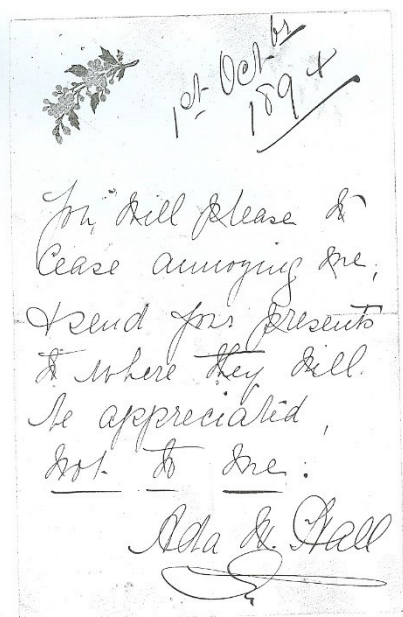 1st Octbr
189
You, will please to
Cease annoying me,
& send your presents
to where they will
be appreciated,
not to me.
Ada